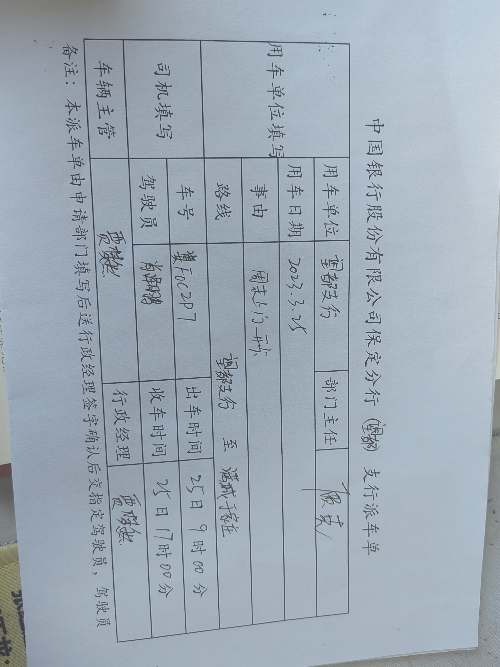 中国银行股份有限公司保定分行(望都)支行派车单
用车单位填写 用车单位 望都支行 部门主任
用车日期 2023.3.25
事由 周末上门开卡
路线 望都支行 至 满城
司机填写 车号 冀F0C2P7 出车时间 25日9时00分
驾驶员 收车时间 25日17时00分
车辆主管 行政经理
备注:本派车单由申请部门填写后送行政经理签字确认后交指定驾驶员,驾驶员